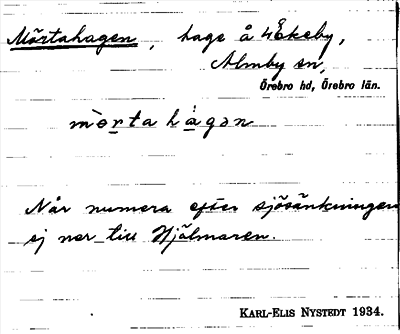 Mörtahagen, hage å 4 Ekeby,
Almby sn,
Örebro hd, Örebro län.
mò̤rta hàgan
Når numera efter sjösänkningen
ej ner till Hjälmaren.
KARL-ELIS NYSTEDT 1934.